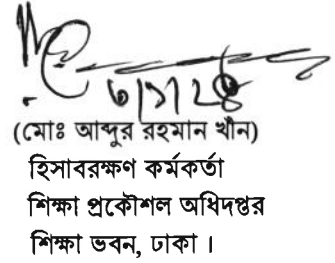 (মোঃ আব্দুর রহমান খাঁন)
হিসাবরক্ষণ কর্মকর্তা
শিক্ষা প্রকৌশল অধিদপ্তর
শিক্ষা ভবন, ঢাকা ।